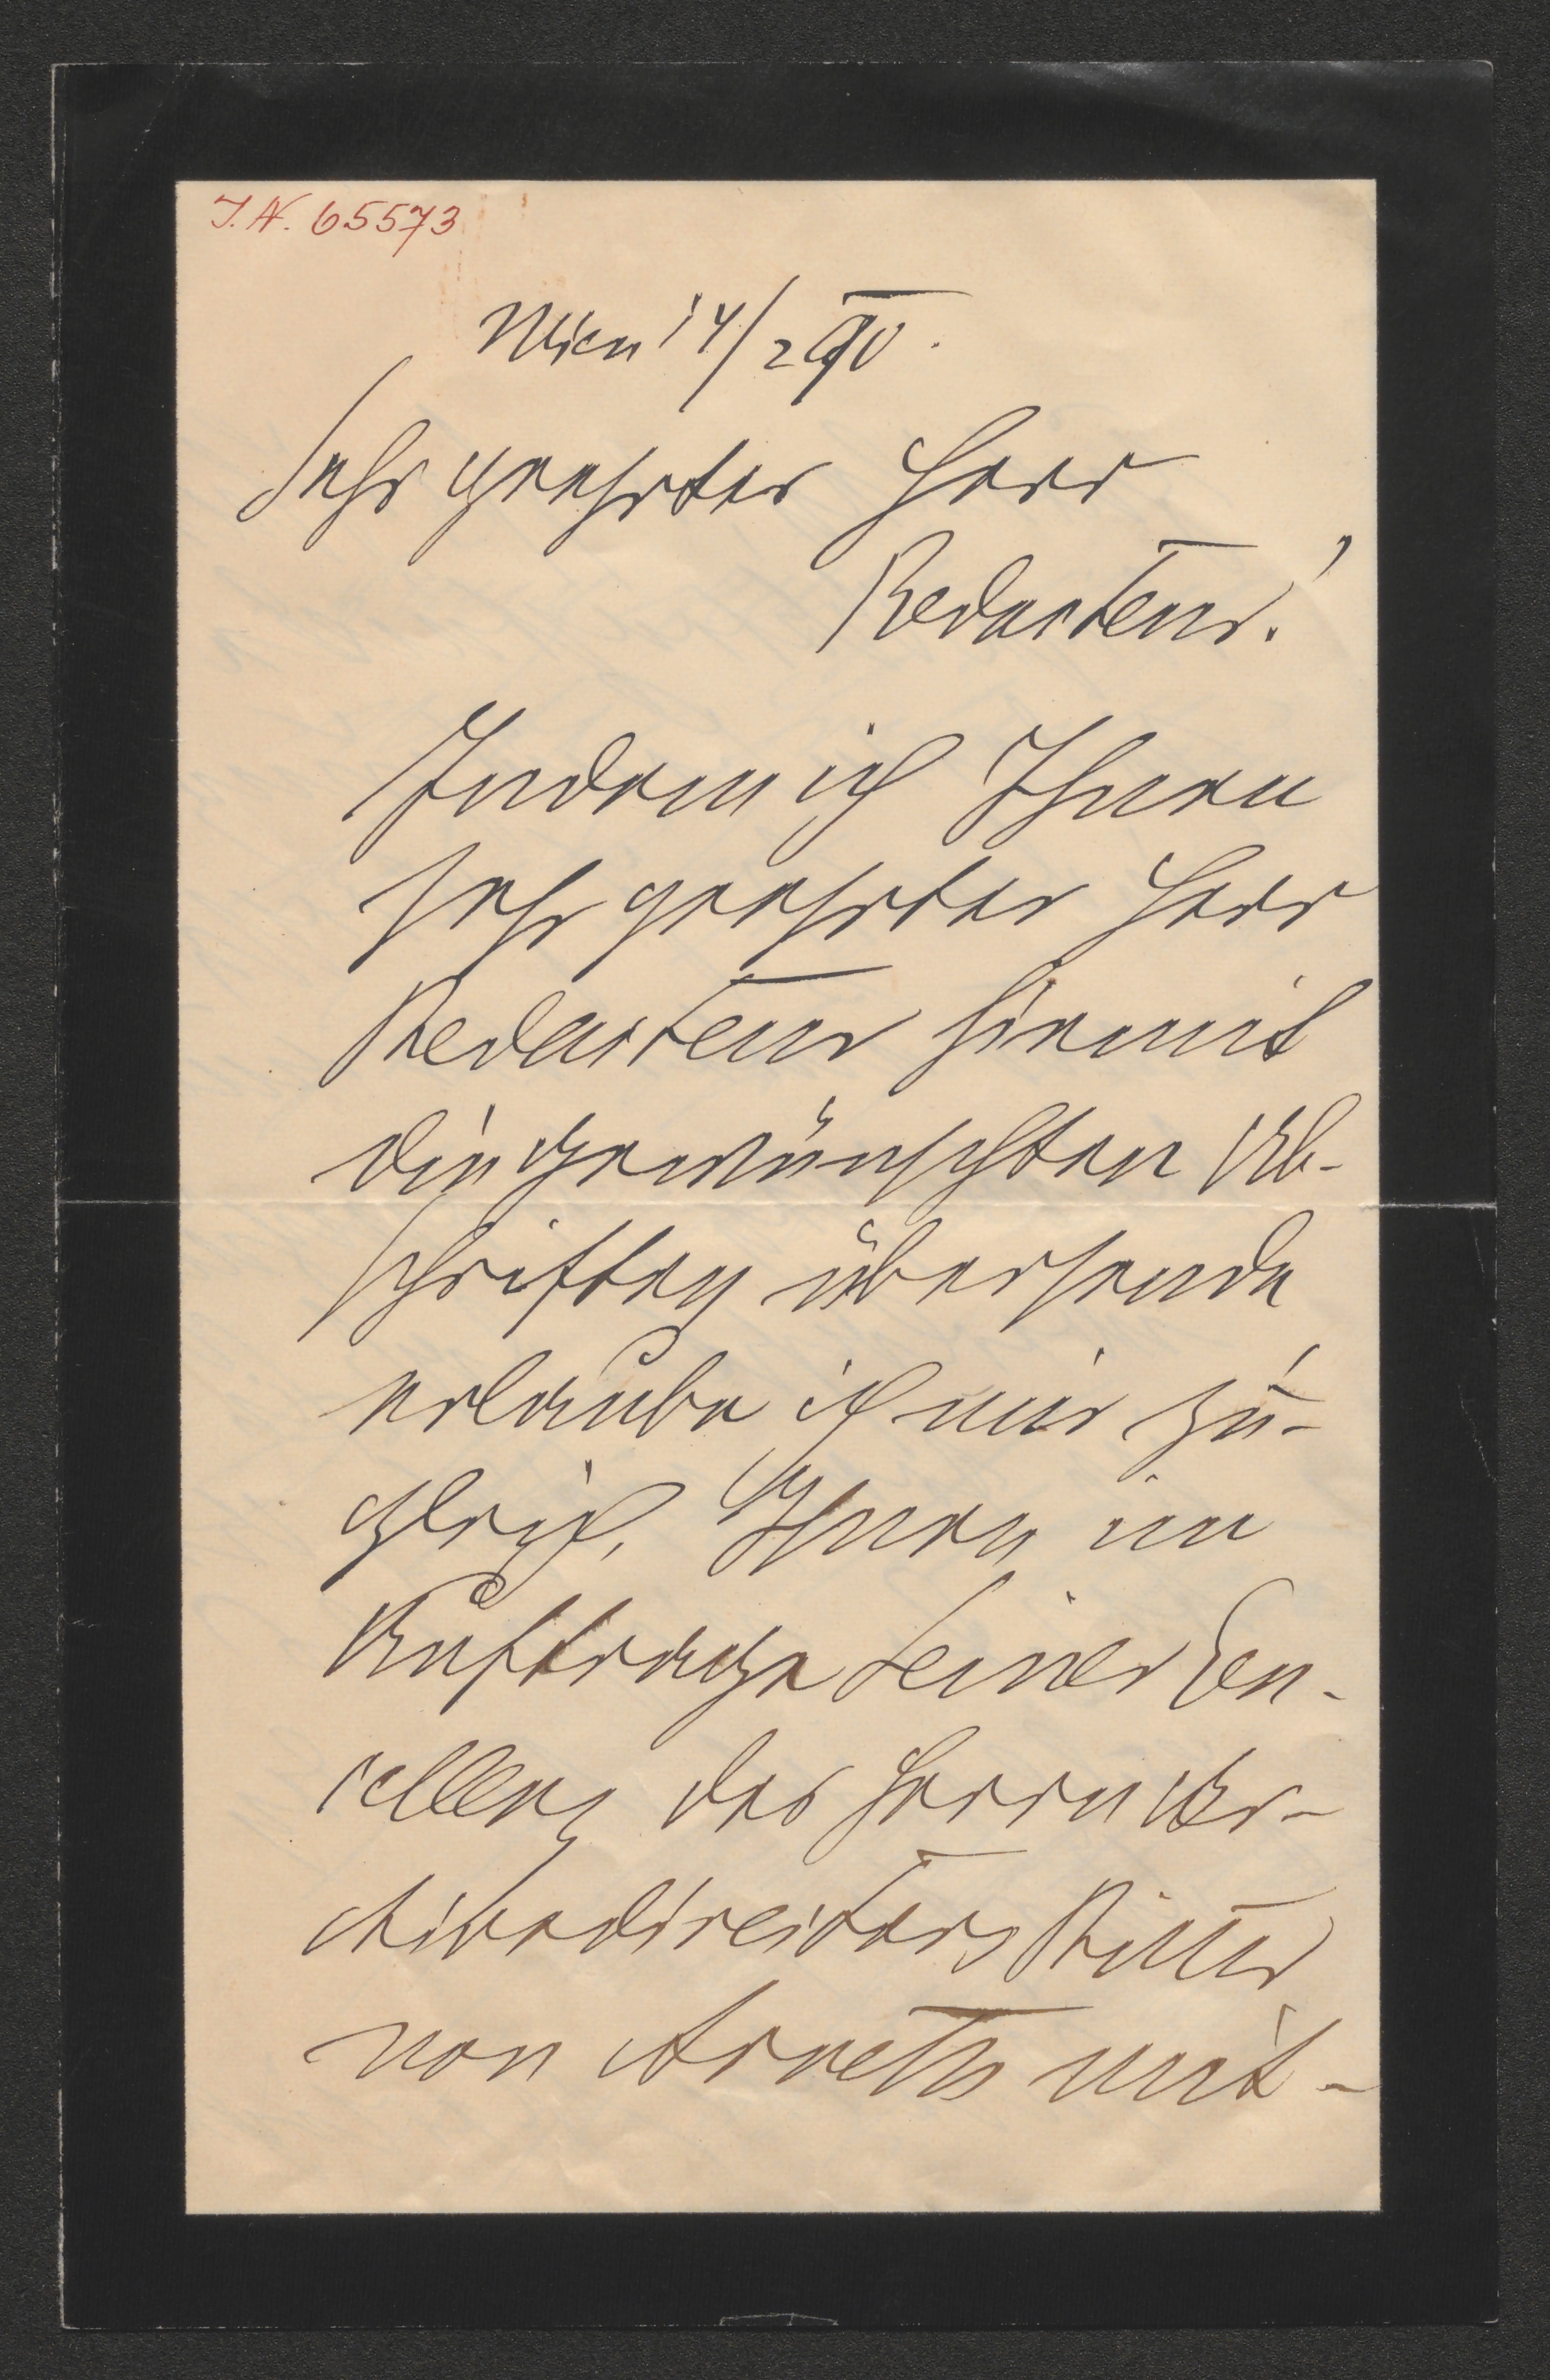 I. N. 65573
Wien 14/2 90.
Sehr geehrter Herr
Redacteur!
Indem ich Ihnen
sehr geehrter Herr
Redacteur hiemit
die gewünschten Ab-
schriften übersende
erlaube ich mir zu-
gleich, Ihnen im
Auftrage Seiner Ex-
cellenz des Herrn Ar-
chivsdirectors Ritter
von Arneth mit-